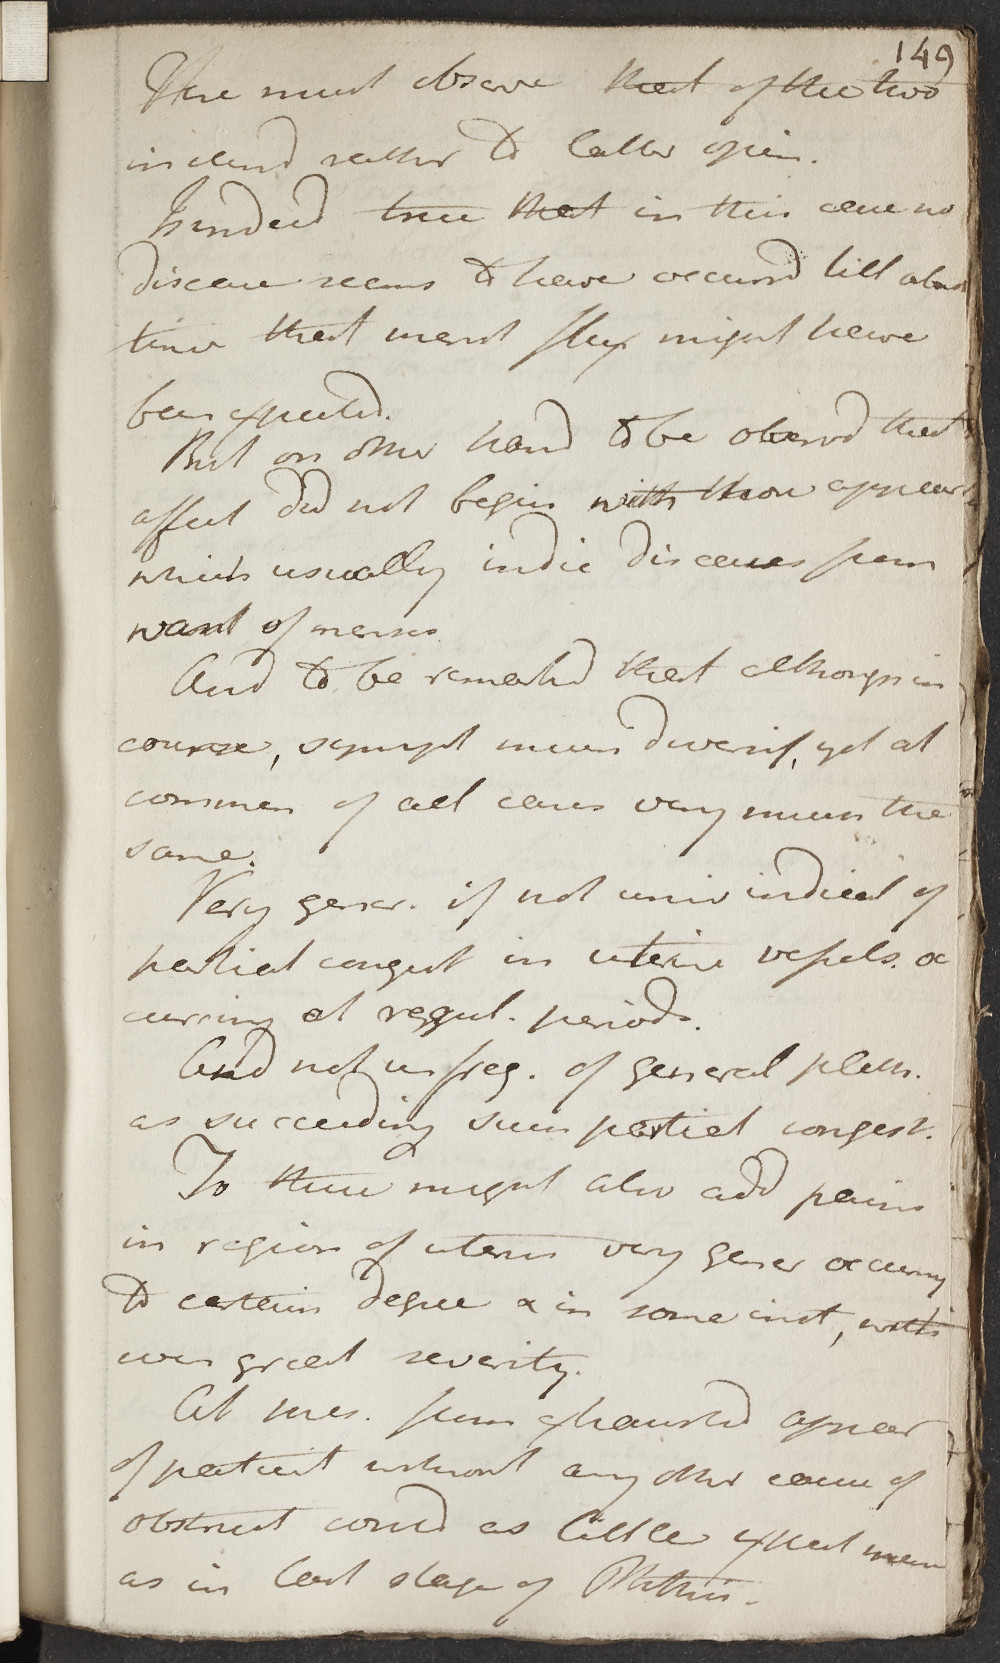 149
Here must observe that of the two
inclind rather to latter opin.
Is indeed true that in this case no
disease seems to have occurrd till about
time that menst flux might have
been expected.
But on other hand to be observd that
affect did not begin with those appear
which usually indic diseases from
want of menses
And to be remarkd that although in
course, sympt much diversif, yet at
commen of all cases very much the
same.
Very gener. if not univ indicat of
partial congest in uterine vessels. oc
curring at regul. periods.
And not unfreq. of general pleth.
as succeeding such partial congest.
To these might also add pains
in region of uterus very gener occurring
to certain degree & in some inst, with
even great severity.
At pres. from exhausted appear
of patient without any other cause of
obstruct could as little expect mens
as in last stage of Phthisis.